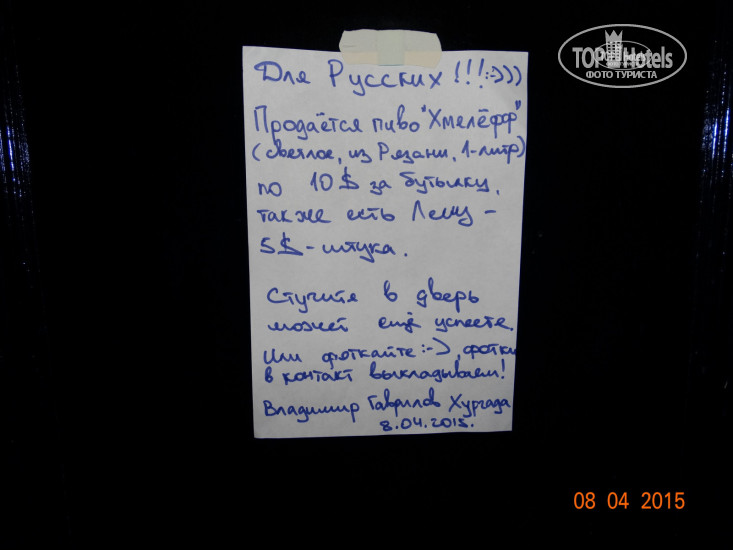 Для Русских!!!:-)))
Продаётся пиво "Хмелёфф"
(светлое, из Рязани, 1-литр)
по 10$ за бутылку,
также есть Лещ -
5$ - штука.
Стучите в дверь
может ещё успеете.
Или фоткайте :-), фотки
в контакт выкладываем!
Владимир Гаврилов Хургада
8.04.2015.
TOP Hotels
ФОТО ТУРИСТА
08 04 2015